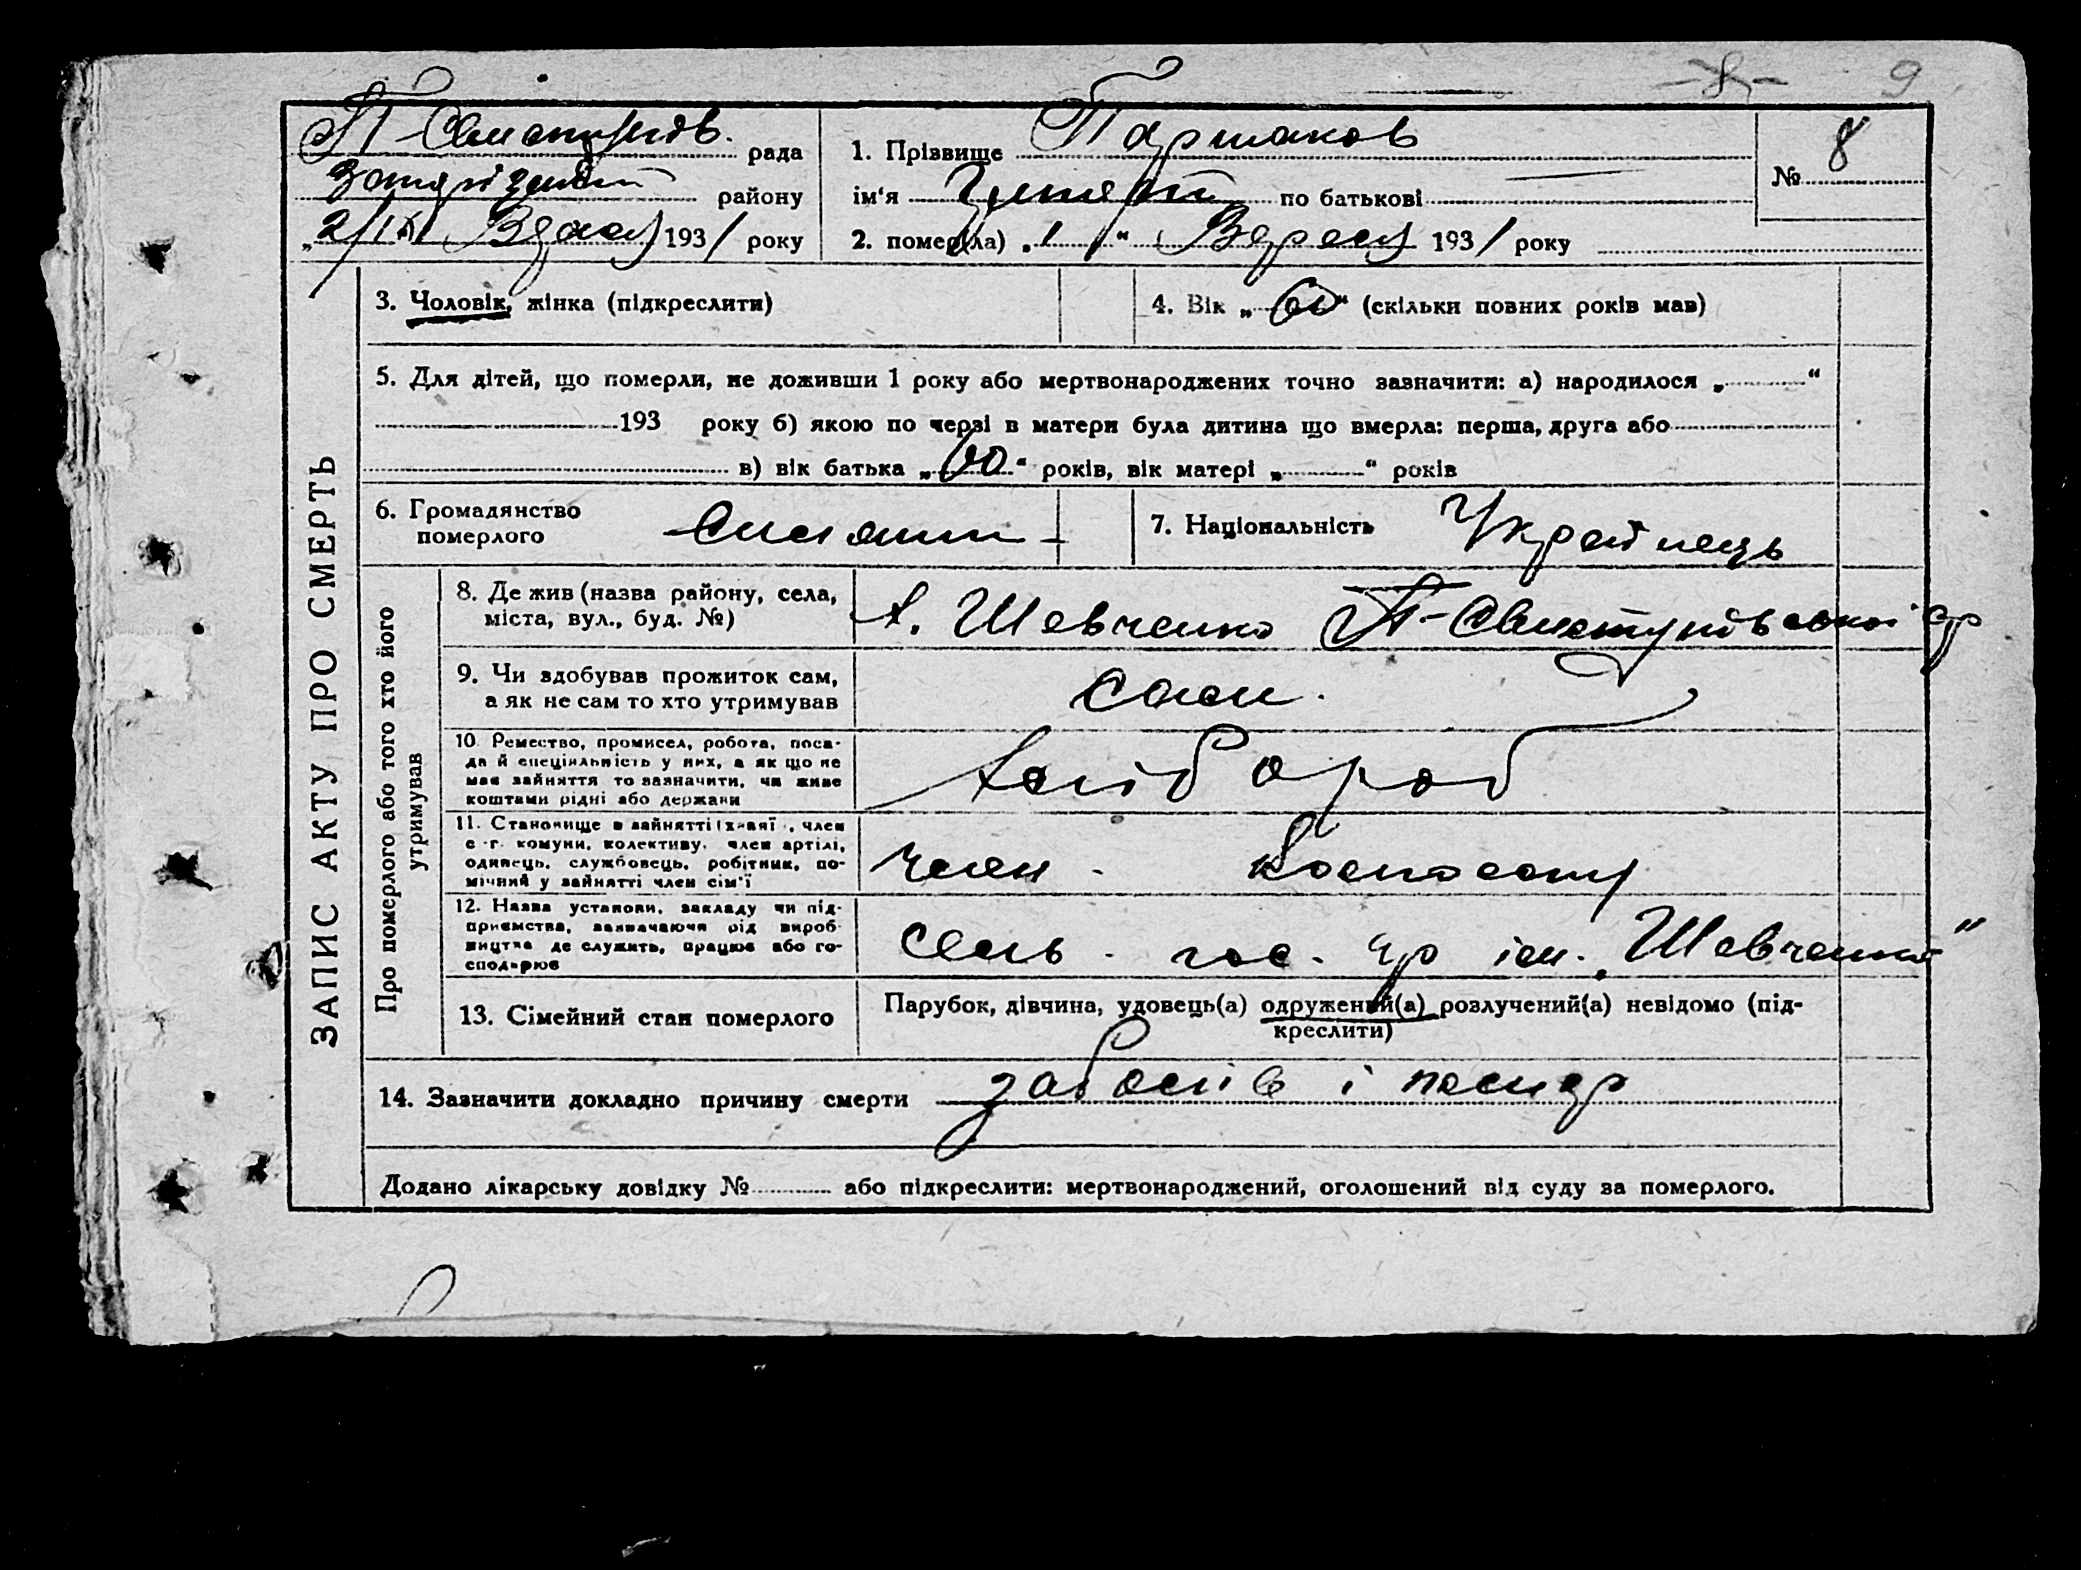 -8- 9
П-Свистунів. рада
Запорізький району
„2/IX Вересн 1931 року
1. Прізвище Паршаков
ім‘я по батькові
2. помер(ла) „1“ Вересн 1931 року
№ 8
ЗАПИС АКТУ ПРО СМЕРТЬ
3. Чоловік, жінка (підкреслити)
4. Вік „60“ (скільки повних років мав)
5. Для дітей, що померли, не доживши 1 року або мертвонароджених точно зазначити: а) народилося „ “
193 року б) якою по черзі в матери була дитина що вмерла: перша, друга або
в) вік батька „60“ років, вік матері „ “ років
6. Громадянство
померлого
7. Національність Украінець
Про померлого або того хто його
утримував
8. Де жив (назва району, села,
міста, вул., буд. №)
х. Шевченко П-Свистунівськоі ср
9. Чи здобував прожиток сам,
а як не сам то хто утримував
сам.
10. Ремество, промисел, робота, поса-
да й спеціяльність у них, а як що не
має зайняття то зазначити, чи живе
коштами рідні або держави
Хлібороб
11. Становище в зайнятті (хазяї, член
с-г. комуни, колективу, член артілі,
одинець, службовець, робітник, по-
мічний у зайнятті член сім'ї
член - колгоспу
12. Назва установи, закладу чи під-
приємства, зазначаючи рід вироб-
ництва де служить, працює або го-
сподарює
сель - гос. ар ім. „Шевченка”
13. Сімейний стан померлого
Парубок, дівчина, удовець(а) одружений(а) розлучений(а) невідомо (під-
креслити)
14. Зазначити докладно причину смерти
заболів і помер
Додано лікарську довідку № або підкреслити: мертвонароджений, оголошений від суду за померлого.